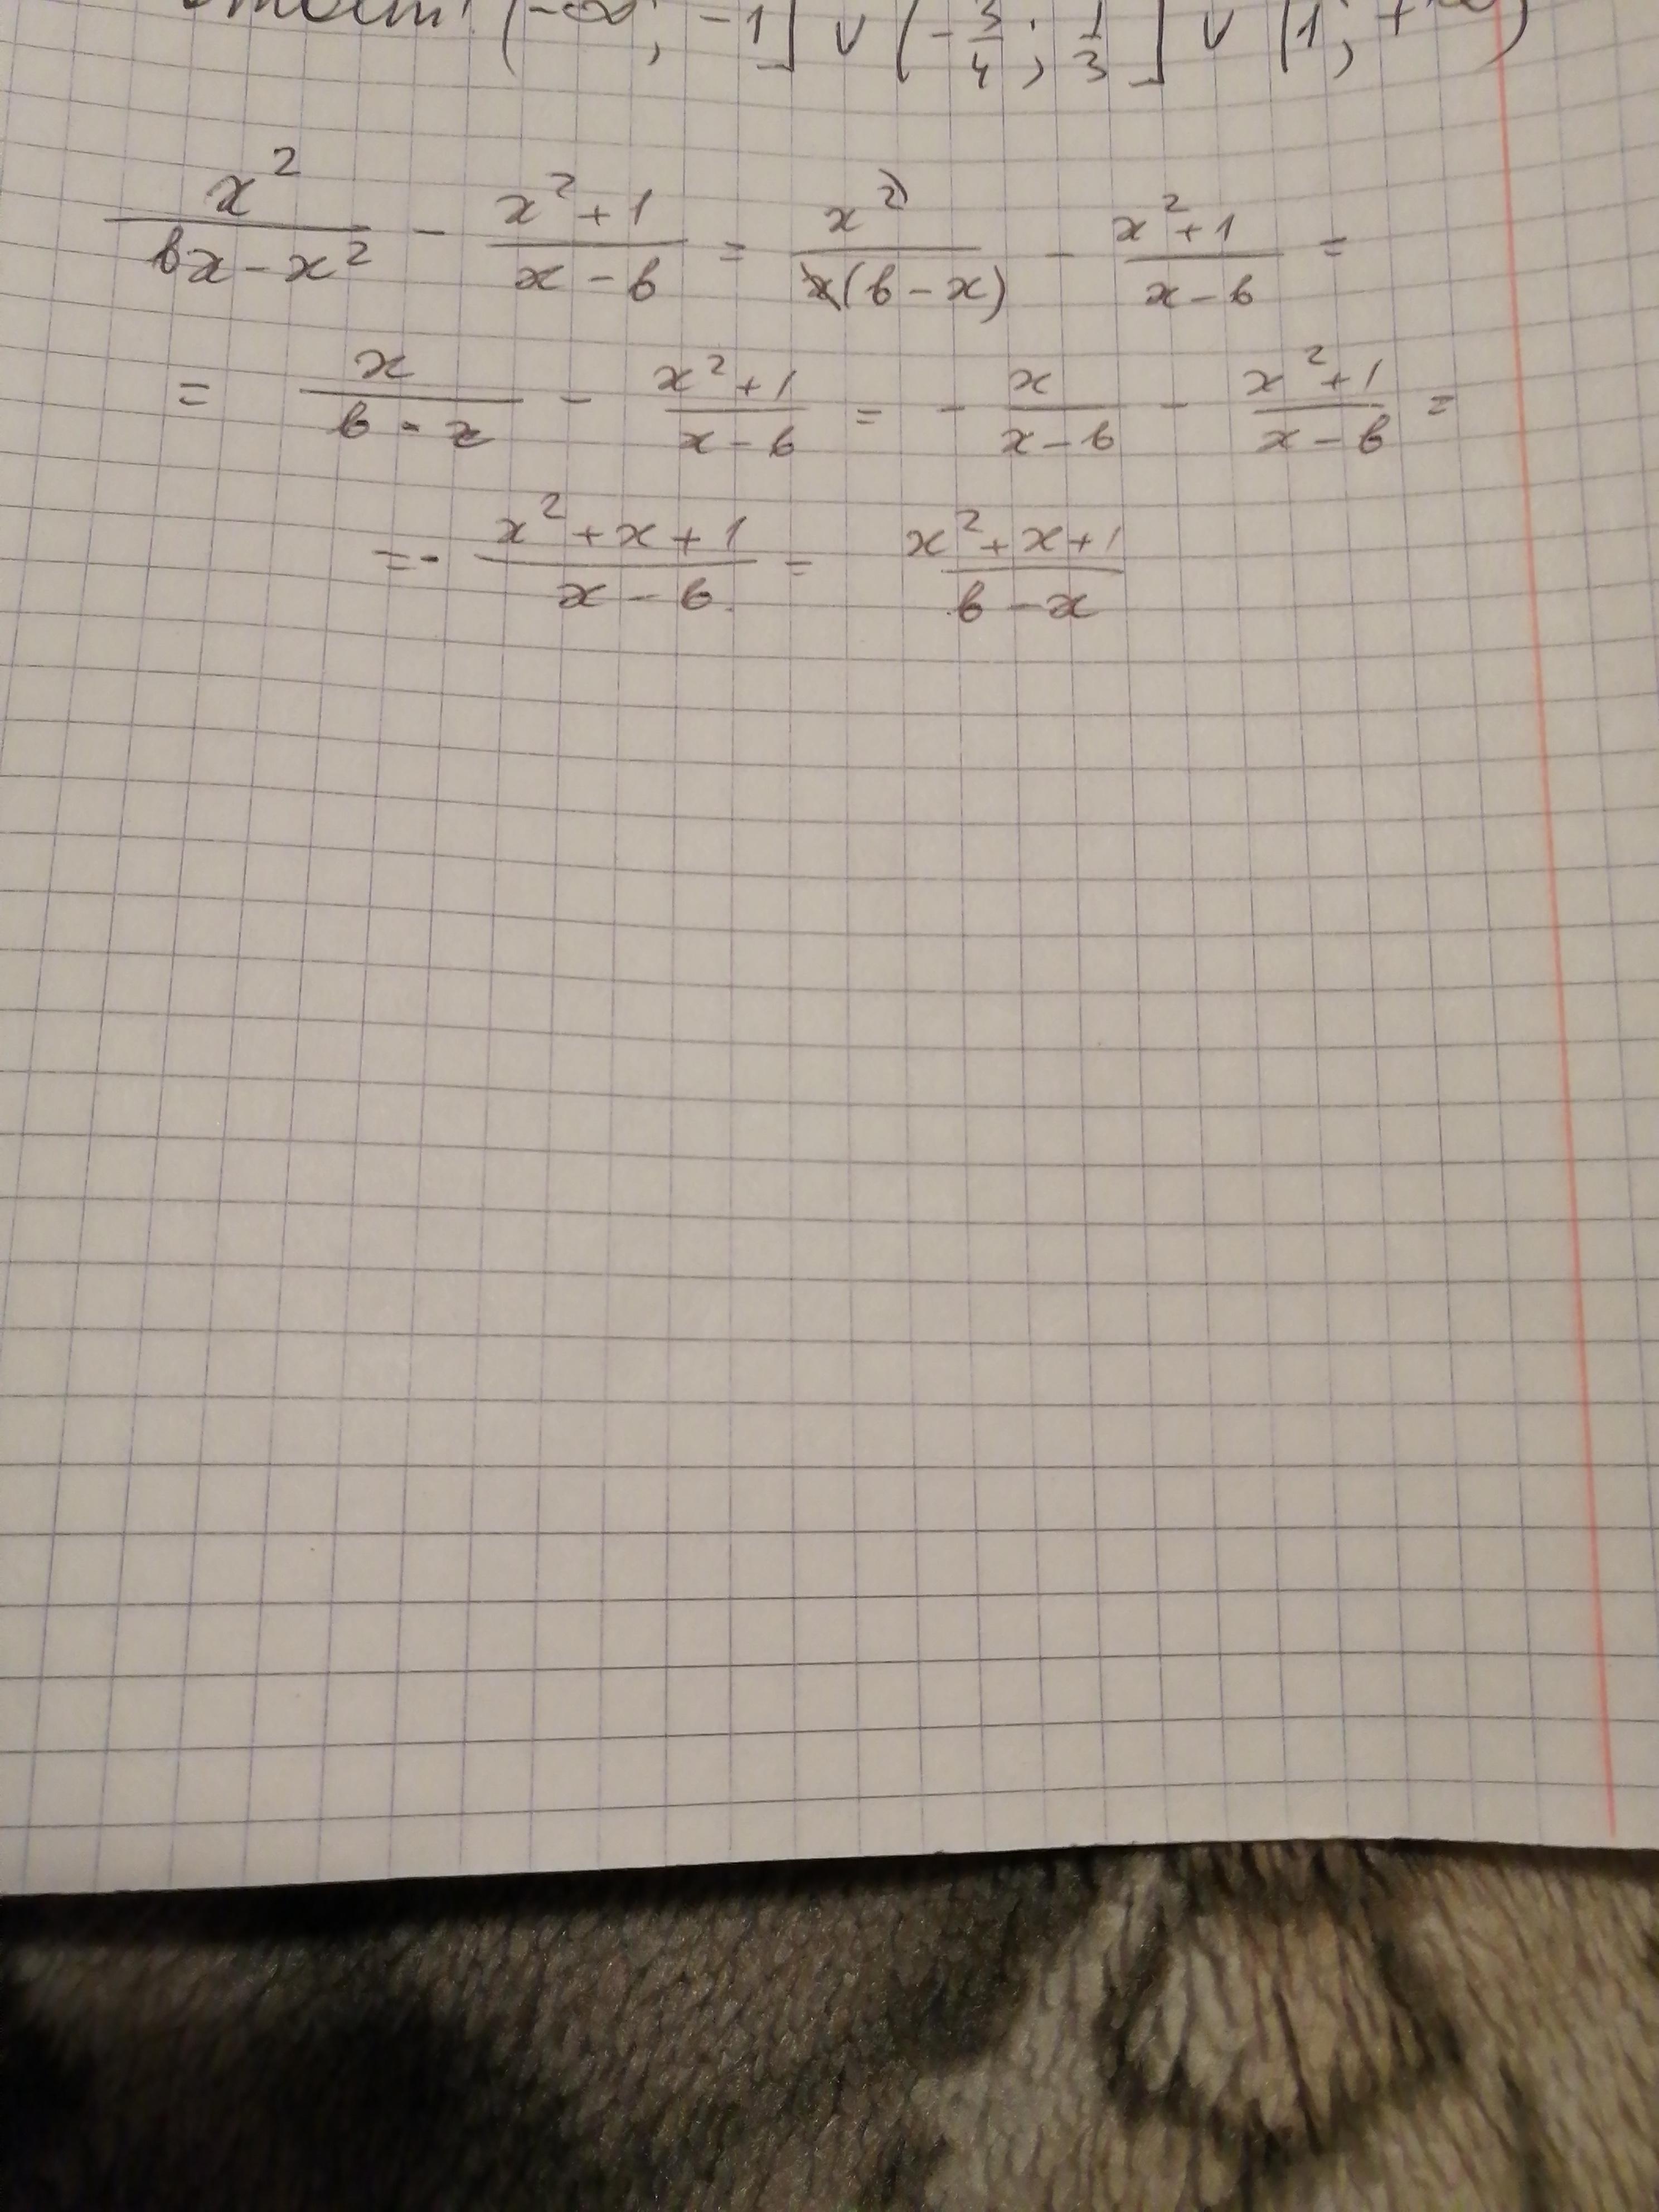 Ответ: (-∞; -1] ∪ (-3/4; 1/3] ∪ [1; +∞)
x²/(bx - x²) - (x² + 1)/(x - b) = x²/(x(b - x)) - (x² + 1)/(x - b) =
= x/(b - x) - (x² + 1)/(x - b) = - x/(x - b) - (x² + 1)/(x - b) =
= - (x² + x + 1)/(x - b) = (x² + x + 1)/(b - x)